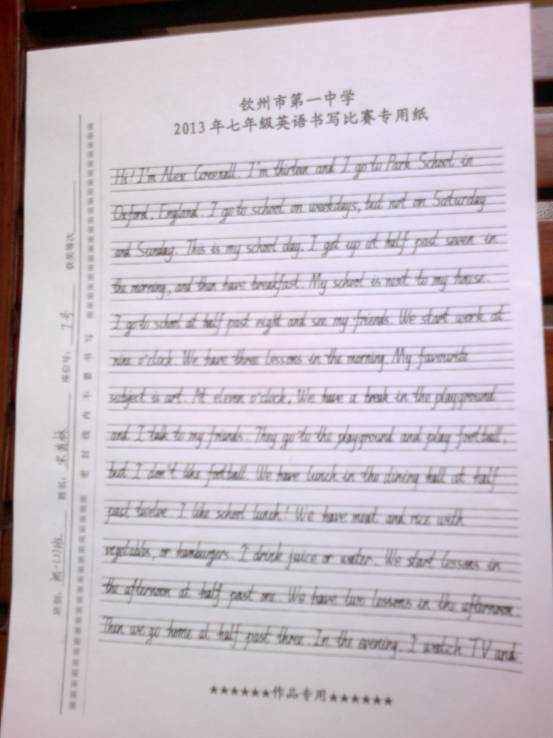 钦州市第一中学
2013年七年级英语书写比赛专用纸
Hi! I'm Alex Greenall. I'm thirteen and I go to Park School in
Oxford, England. I go to school on weekdays, but not on Saturday
and Sunday. This is my school day. I get up at half past seven in
the morning, and then have breakfast. My school is next to my house.
I go to school at half past eight and see my friends. We start work at
nine o'clock. We have three lessons in the morning. My favourite
subject is art. At eleven o'clock, We have a break in the playground
and I talk to my friends. They go to the playground and play football,
but I don't like football. We have lunch in the dining hall at half
past twelve. I like school lunch! We have meat and rice with
vegetables, or hamburgers. I drink juice or water. We start lessons in
the afternoon at half past one. We have two lessons in the afternoon.
Then we go home at half past three. In the evening, I watch TV and
★★★★★★作品专用★★★★★★
班别:
姓名:
座位号: 7号
获奖等次
密封线内不要书写